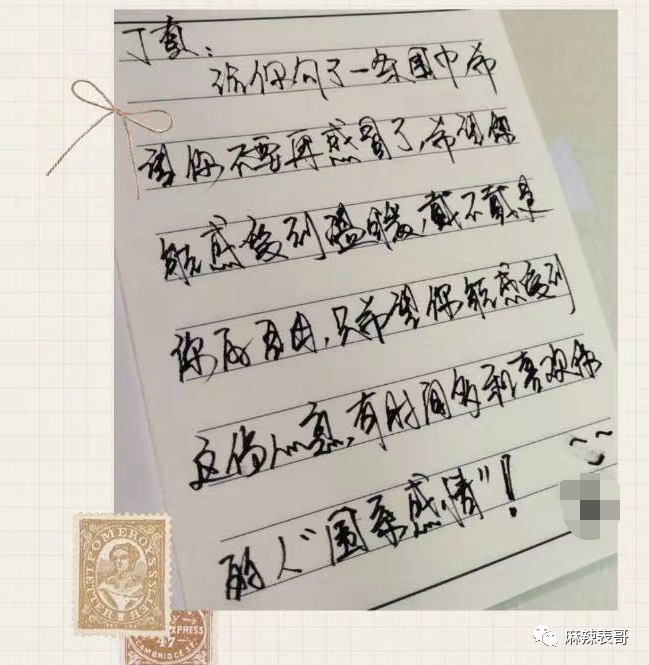 丁真：
给你勾了一条围巾希
望你不要再感冒了，希望你
能感受到温暖，戴不戴是
你的自由，只希望你能感受到
这份心意，有时间多和喜欢你
的人“围条感情”！
POMEROY'S
LETTER
EXPRESS
47
麻辣表哥